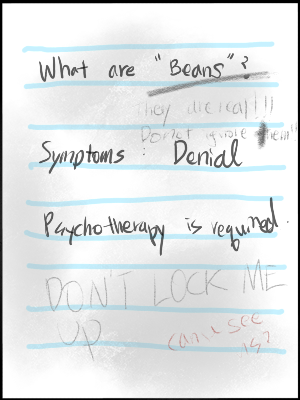 What are "Beans"?
They are real!!!
ignore them!!
Symptoms : Denial
Psychotherapy is required.
DON'T LOCK ME
UP
see